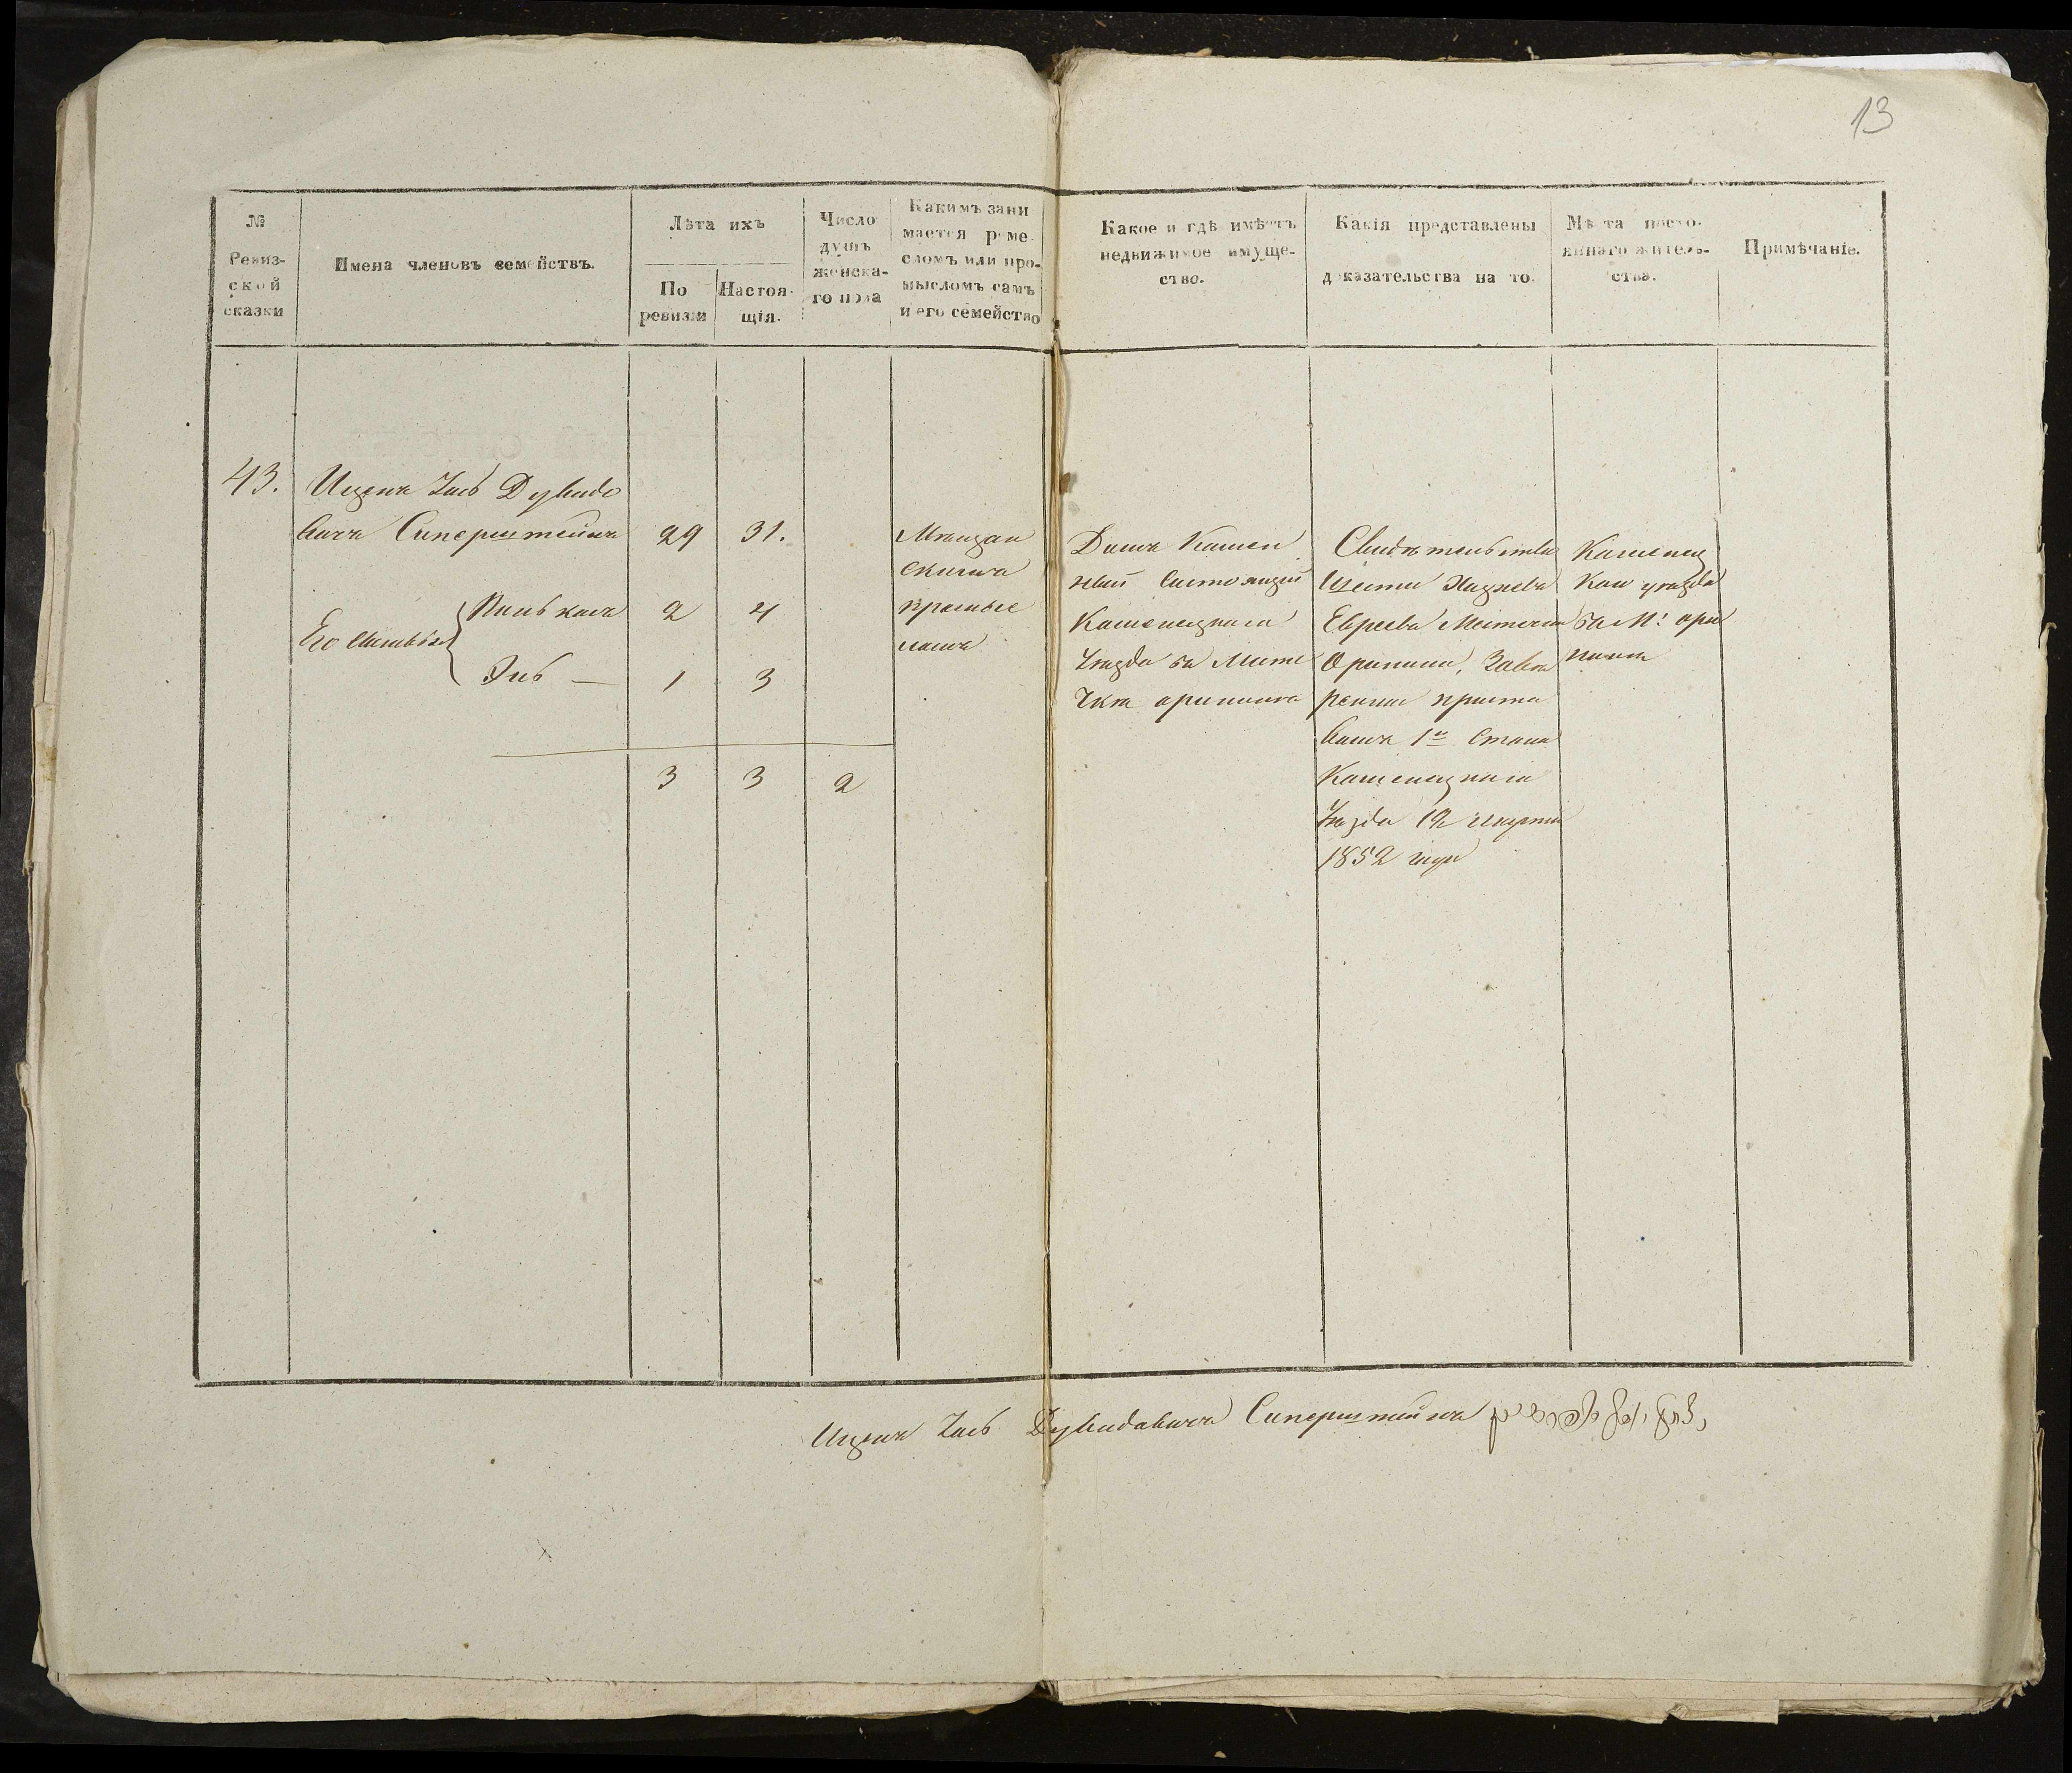 13
№
Ревиз-
ской
сказки
Имена членовъ семействъ.
Лѣта ихъ
По
ревизіи
Настоя-
щія.
Число
душъ
женска-
го пола
Какимъ зани
мается реме-
сломъ или про-
мысломъ самъ
и его семейство
Какое и гдѣ имѣетъ
недвижимое имуще-
ство.
Какія представлены
доказательства на то.
Мѣста посто-
яннаго житель-
ства.
Примѣчаніе.
43.
Ицекъ Дувидо
вичъ Сиперштейнъ 29 31.
Его сыновья
Пинькасъ 2 4
1 3
3 3 2
Мѣщан
скимъ
промыс
ломъ
Домъ Камен
ный состоящій
Каменецкаго
Уѣзда въ Мѣсте
чкѣ орининѣ
Свидѣтельство
Шести
Евреевъ Мѣстечка
Оринина, Завѣ
ренное приста
вомъ 1го Стана
Каменецкаго
Уѣзда 12 марта
1852 года
Каменец
ком уѣзде
въ М: ори
нинѣ
Ицекъ Дувидовичъ Сиперштейнъ